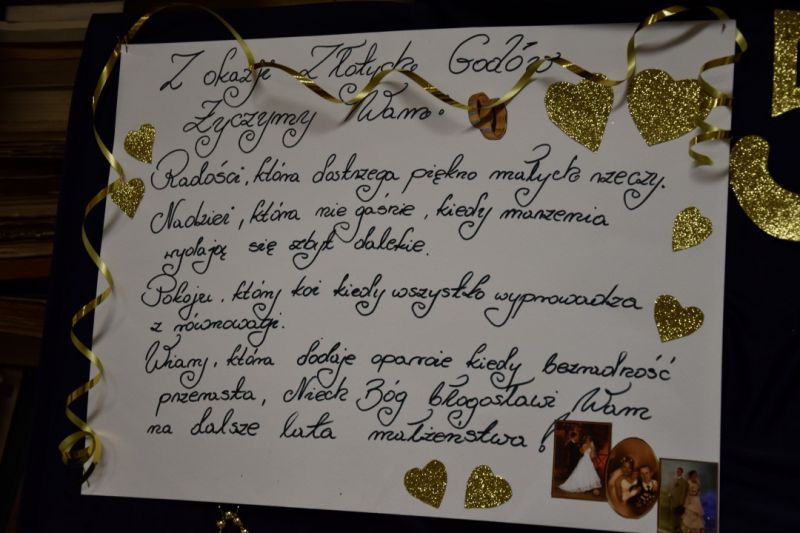 Z okazji Złotych Godów
Życzymy Wam:
Radości, która dostrzega piękno małych rzeczy.
Nadziei, która nie gaśnie, kiedy marzenia
wydają się zbyt dalekie.
Pokoju, który koi kiedy wszystko wyprowadza
z równowagi.
Wiary, która dodaje oparcie kiedy bezradność
przerasta, Niech Bóg błogosławi Wam
na dalsze lata małżeństwa!
5